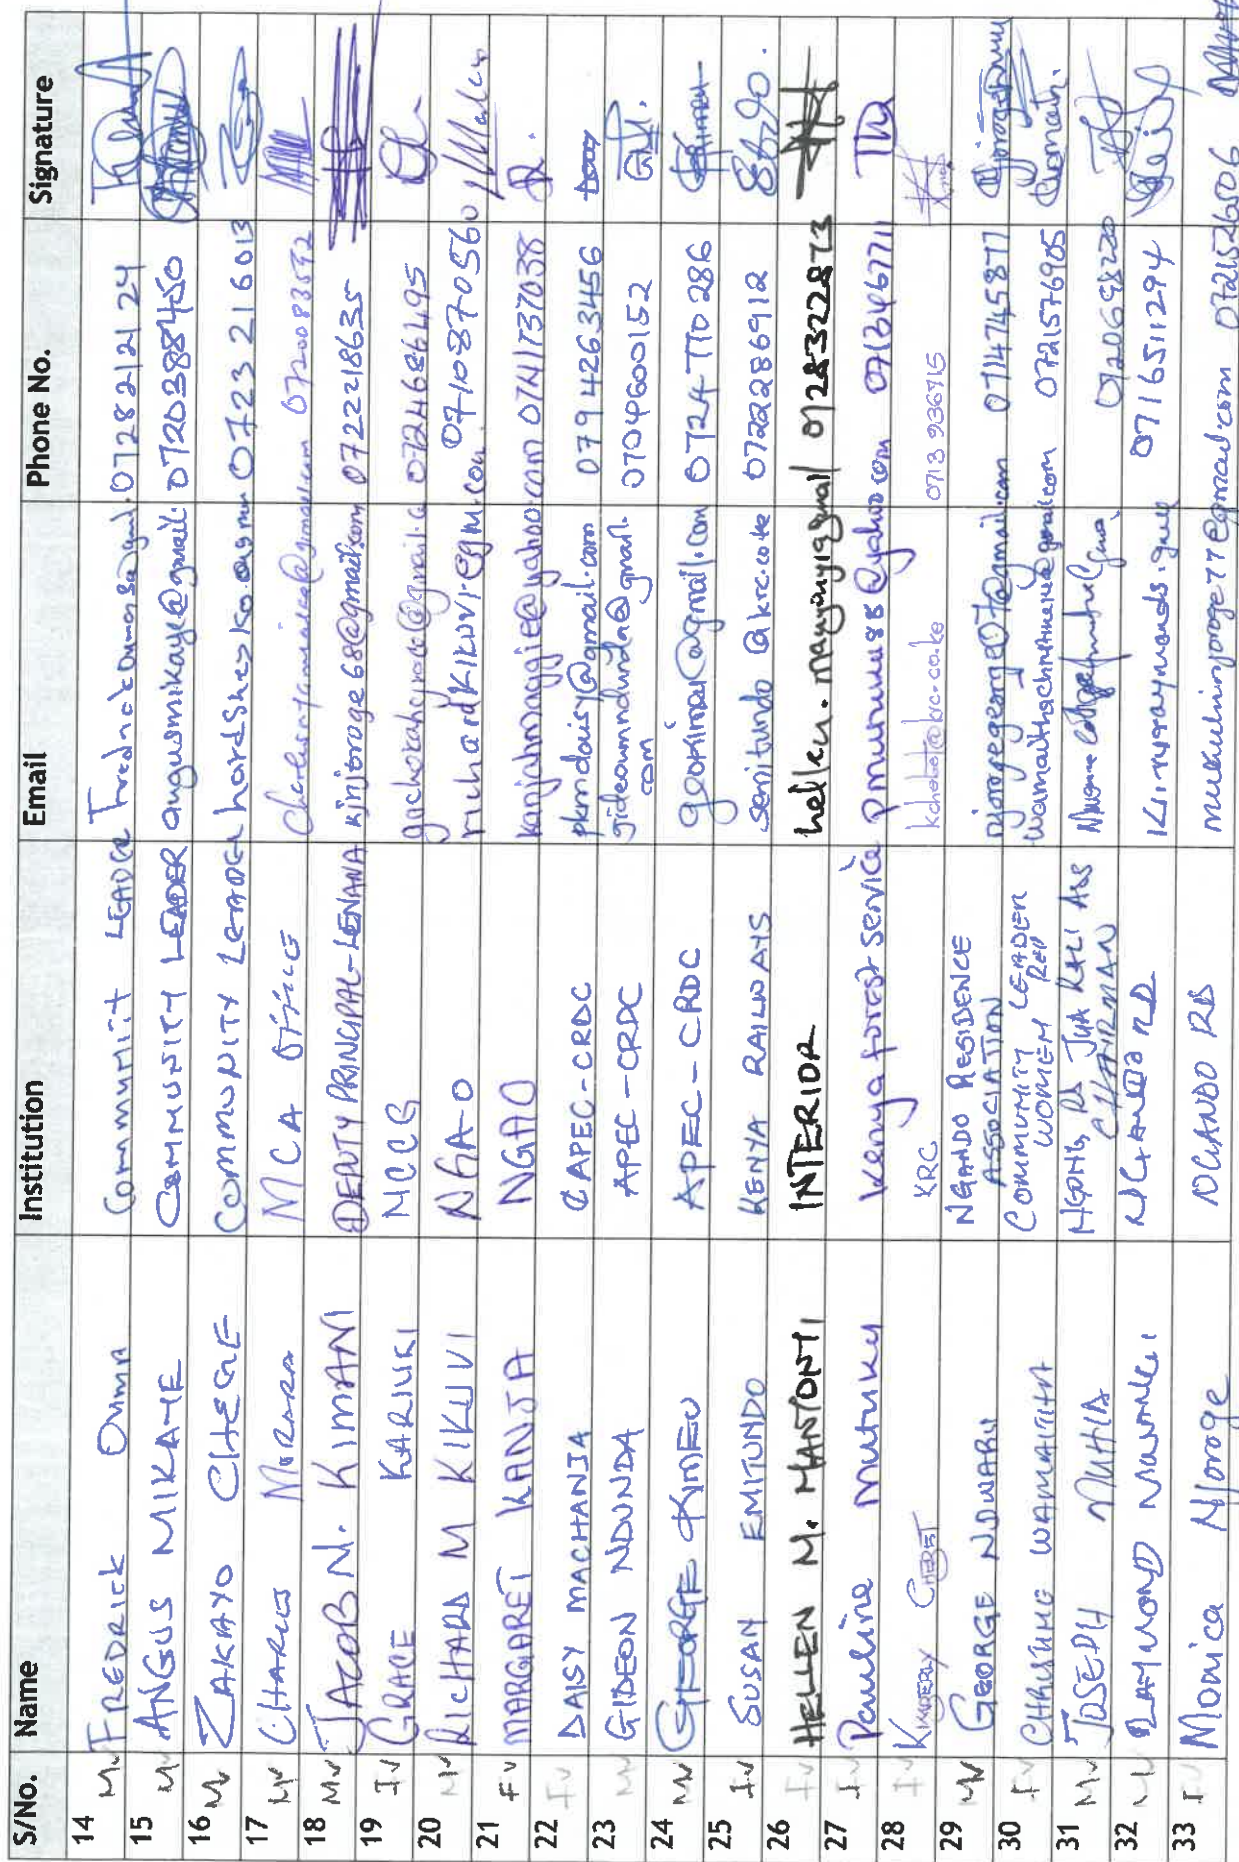 S/No. Name Institution Email Phone No. Signature
14 M✓ FREDRICK OUMA COMMUNITY LEADER 0728212124
15 M✓ ANGUS MIKAYE COMMUNITY LEADER angusmikaye@gmail. 0720388450
16 M✓ ZAKAYO CHEGE COMMUNITY LEADER 0723216013
17 M✓ CHARLES MORARA MCA OFFICE 0720083592
18 M✓ JACOB N. KIMANI DEPUTY PRINCIPAL-LENANA kinjoroge68@gmail.com 0722218635
19 F✓ GRACE KARIUKI NCCG 0724686495
20 M✓ RICHARD M KIKUVI NGAO richardkikuvi@gm.com 0710870560
21 F✓ MARGARET KANJA NGAO kanjahmaggie@yahoo.com 0741737038
22 F✓ DAISY MACHANIA APEC-CRDC pkmdaisy@gmail.com 0794263456
23 M✓ GIDEON NDUNDA APEC-CRDC gideonndunda@gmail.
com 0704600152
24 M✓ GEORGE KIMEU APEC-CRDC geokimeu@gmail.com 0724770286
25 F✓ SUSAN EMITUNDO KENYA RAILWAYS semitundo@krc.co.ke 0722286912
26 F✓ HELLEN M. MANYONYI INTERIOR 0728322873
27 F✓ Pauline Mutuku Kenya forest service pmutuku88@yahoo.com 0713406771
28 F✓ KIMBERLY CHEBET KRC kchebet@krc.co.ke 0713936715
29 M✓ GEORGE NDWARU NGANDO RESIDENCE
ASSOCIATION njorogegeorge07@gmail.com 0714745877
30 F✓ CHRISTINE WAMAITHA COMMUNITY LEADER
WOMEN REP wamaithachristine@gmail.com 0721576905
31 M✓ JOSEPH MUHIA NGONG RD JUA KALI ASS
CHAIRMAN 0720698220
32 M✓ RAYMOND NGANDO RD 0716511294
33 F✓ Monica Njoroge NGANDO RD 0721526506